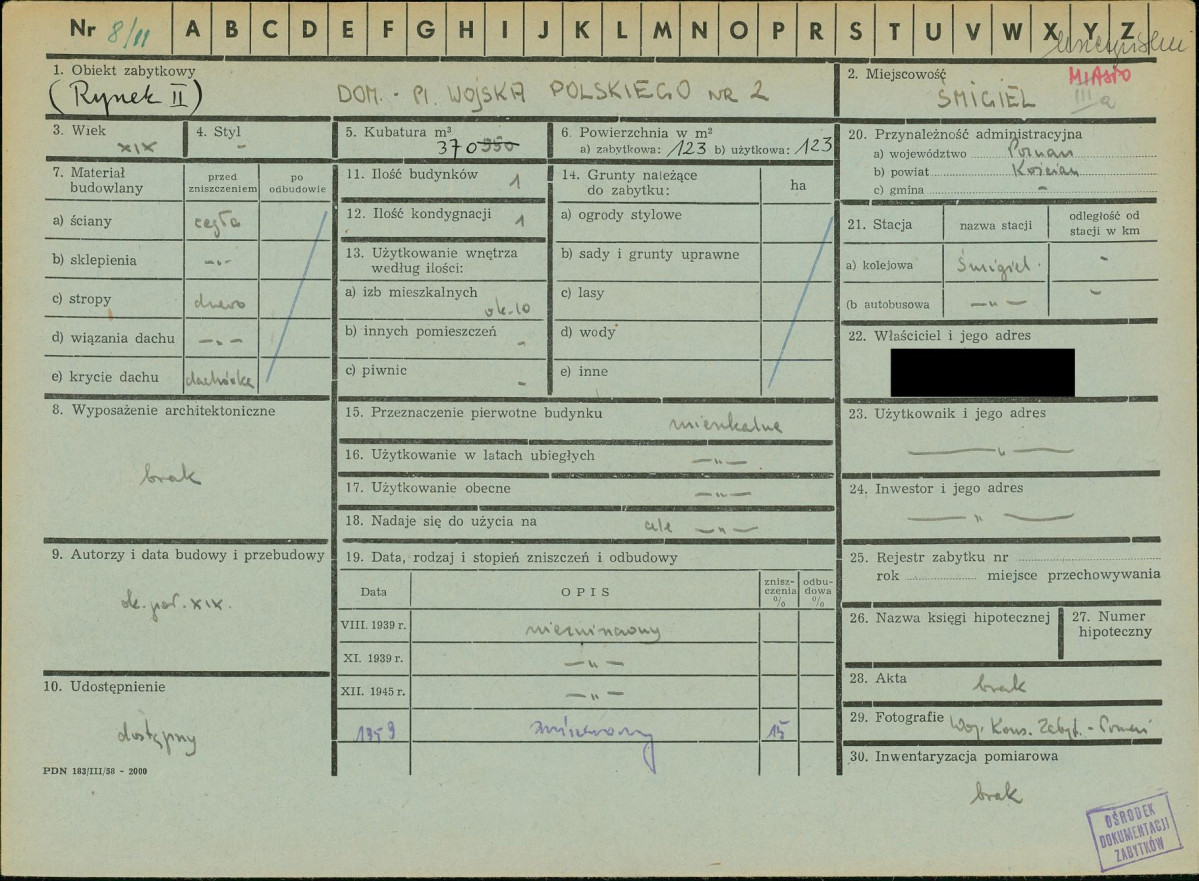 Nr 8/II A B C D E F G H I J K L M N O P R S T U V W X Y Z
1. Obiekt zabytkowy
(Rynek II) DOM. - Pl. WOJSKA POLSKIEGO NR 2
2. Miejscowość MIASTO
ŚMIGIEL III a
3. Wiek
XIX
4. Styl
-
5. Kubatura m³
370 950
6. Powierzchnia w m²
a) zabytkowa: 123 b) użytkowa: 123
7. Materiał budowlany
przed zniszczeniem
po odbudowie
a) ściany cegła
b) sklepienia -„-
c) stropy drewo
d) wiązania dachu -„-
e) krycie dachu dachówka
8. Wyposażenie architektoniczne
brak
9. Autorzy i data budowy i przebudowy
ok. poł. XIX.
10. Udostępnienie
dostępny
PDN 183/III/58 - 2000
11. Ilość budynków 1
12. Ilość kondygnacji 1
13. Użytkowanie wnętrza
według ilości:
a) izb mieszkalnych
ok. 10
b) innych pomieszczeń -
c) piwnic -
14. Grunty należące
do zabytku:
ha
a) ogrody stylowe
b) sady i grunty uprawne
c) lasy
d) wody
e) inne
15. Przeznaczenie pierwotne budynku mieszkalne
16. Użytkowanie w latach ubiegłych -„-
17. Użytkowanie obecne -„-
18. Nadaje się do użycia na cele -„-
19. Data, rodzaj i stopień zniszczeń i odbudowy
Data
OPIS
znisz-
czenia
%
odbu-
dowa
%
VIII. 1939 r. niezniszczony
XI. 1939 r. -„-
XII. 1945 r. -„-
1959 zniszczony 15
20. Przynależność administracyjna
a) województwo Poznań
b) powiat Kościan
c) gmina -
21. Stacja
nazwa stacji
odległość od
stacji w km
a) kolejowa Śmigiel. -
(b autobusowa -„- -
22. Właściciel i jego adres
23. Użytkownik i jego adres
-„-
24. Inwestor i jego adres
-„-
25. Rejestr zabytku nr
rok miejsce przechowywania
26. Nazwa księgi hipotecznej
27. Numer
hipoteczny
28. Akta
brak
29. Fotografie Woj. Kons. Zabyt. - Poznań
30. Inwentaryzacja pomiarowa
brak
OŚRODEK
DOKUMENTACJI
ZABYTKÓW